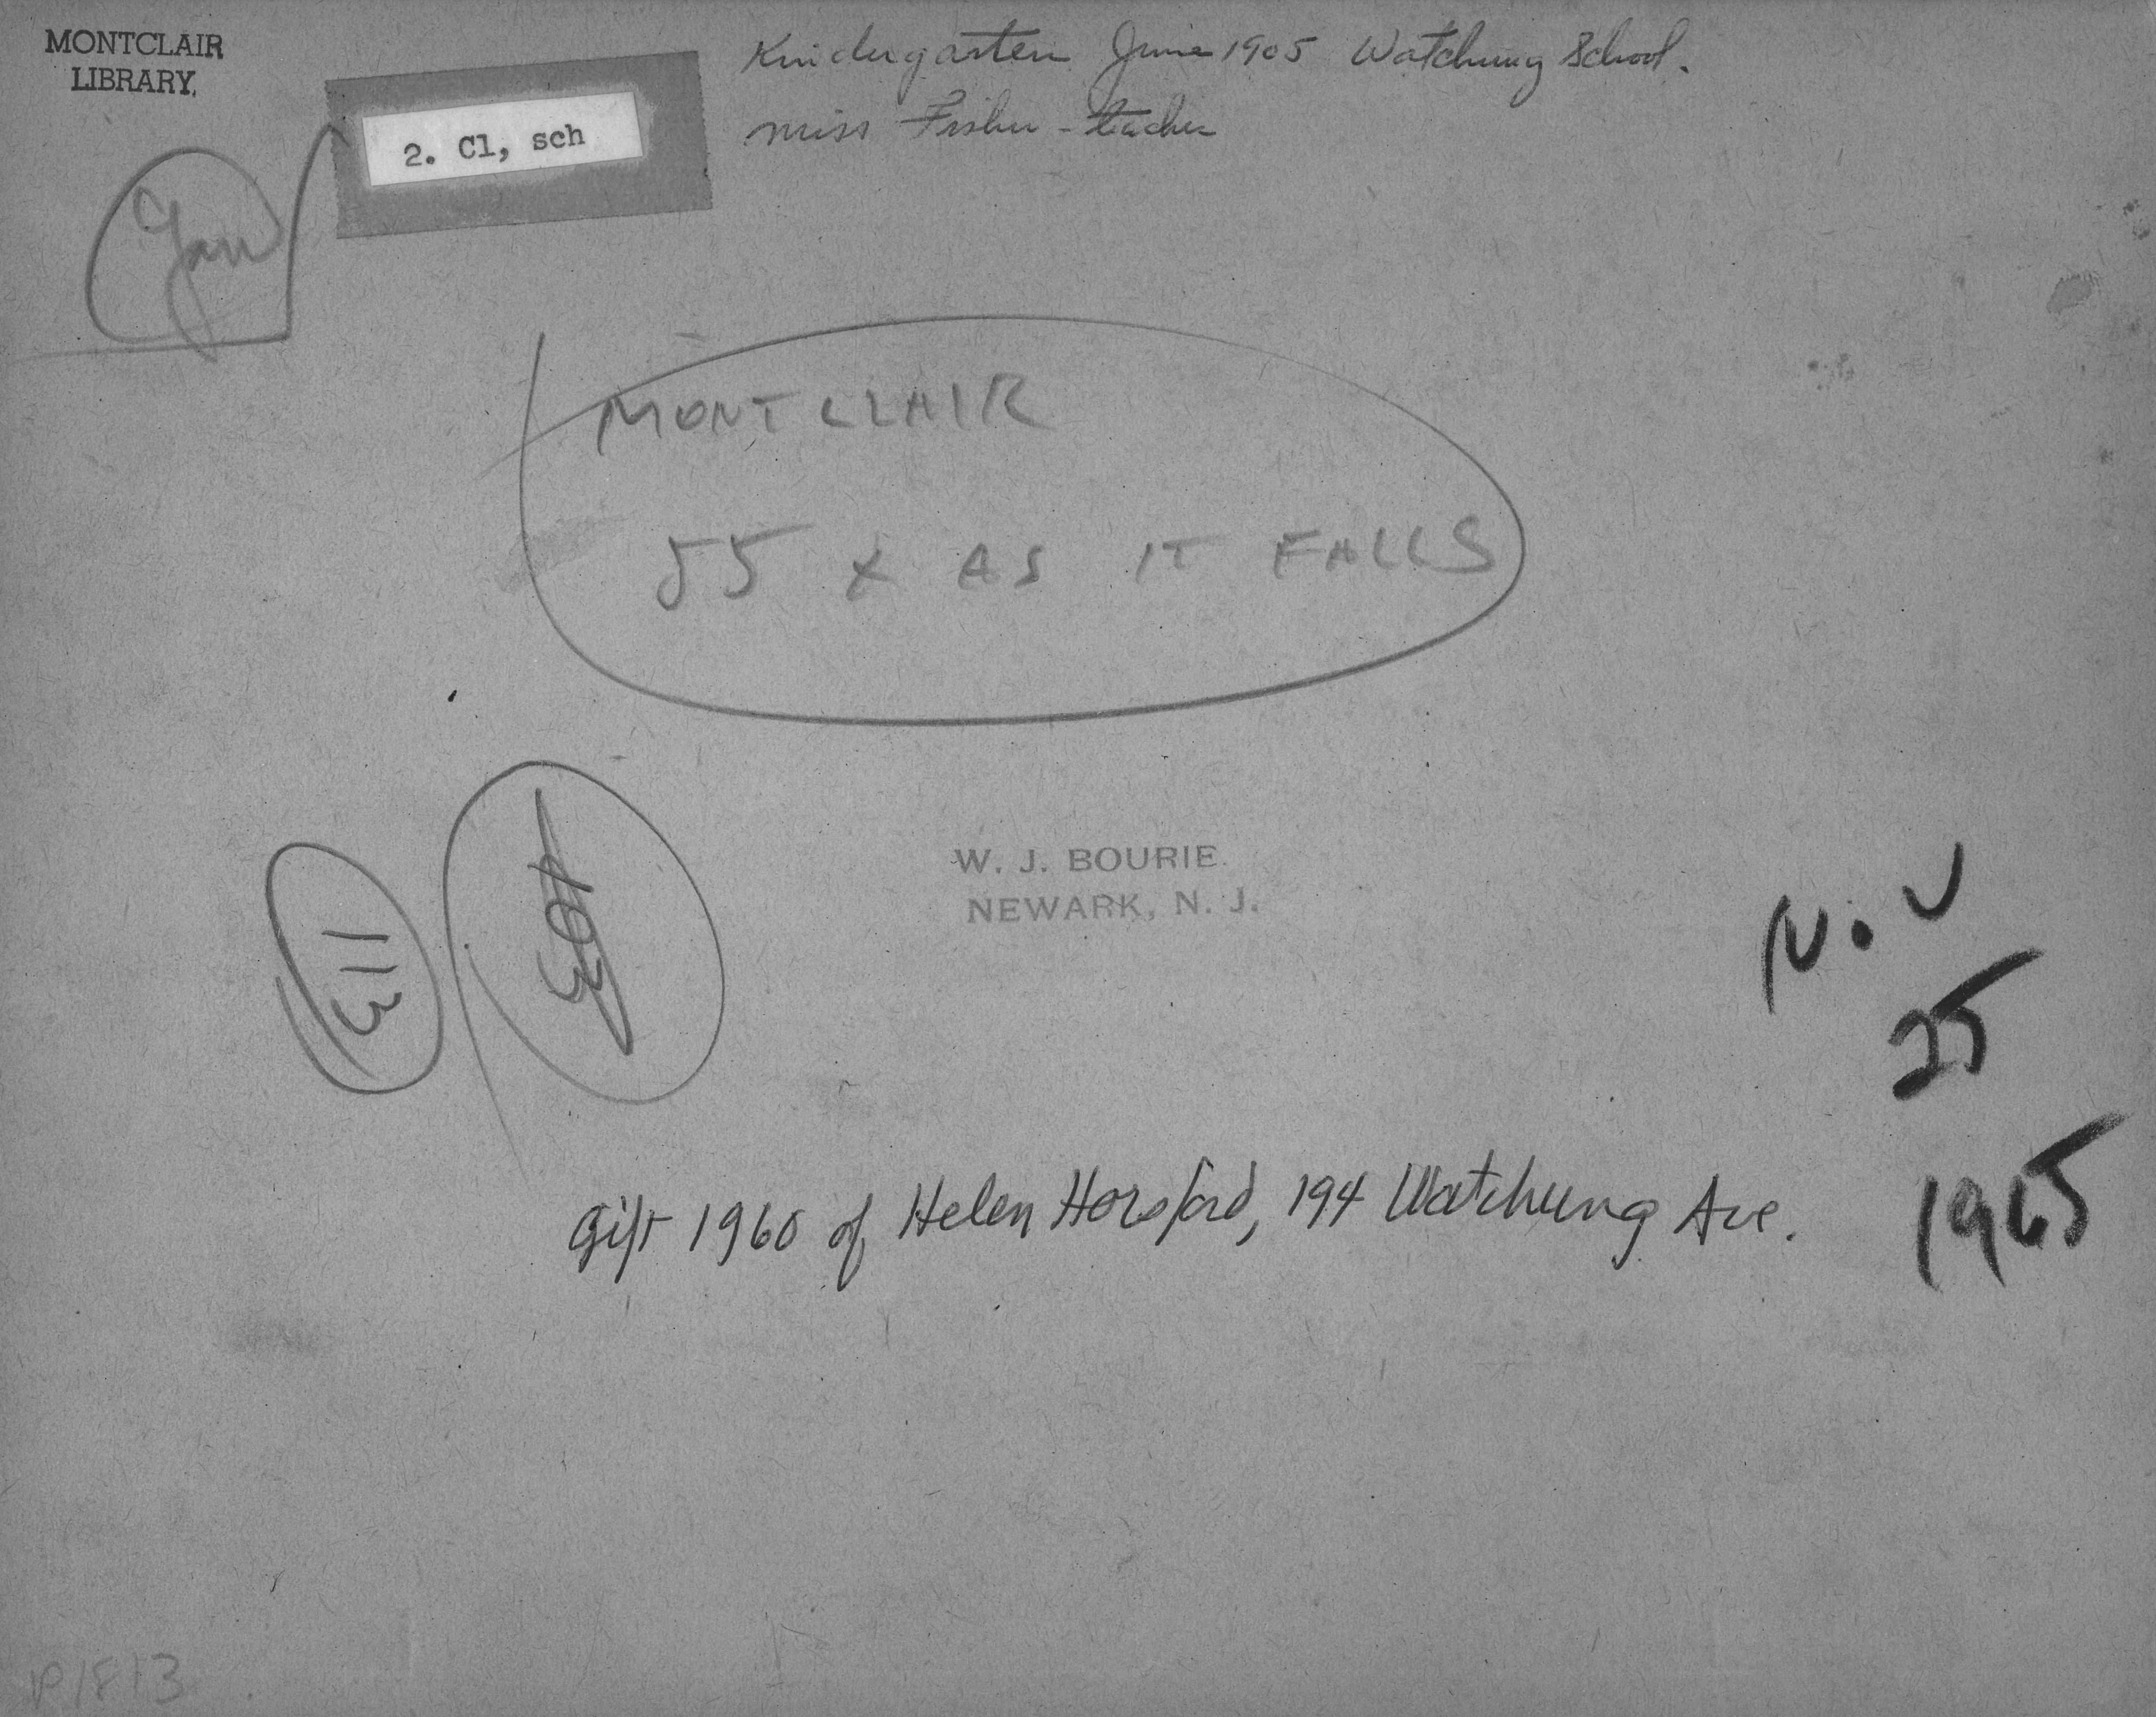 MONTCLAIR
LIBRARY.
2. Cl, sch
Kindergarten June 1905 Watchung School.
Miss Fisher - teacher
MONTCLAIR
55 x AS IT FALLS
113
103
W. J. BOURIE
NEWARK, N. J.
25
1965
Gift 1960 of Helen Horsford, 194 Watchung Ave.
P1813